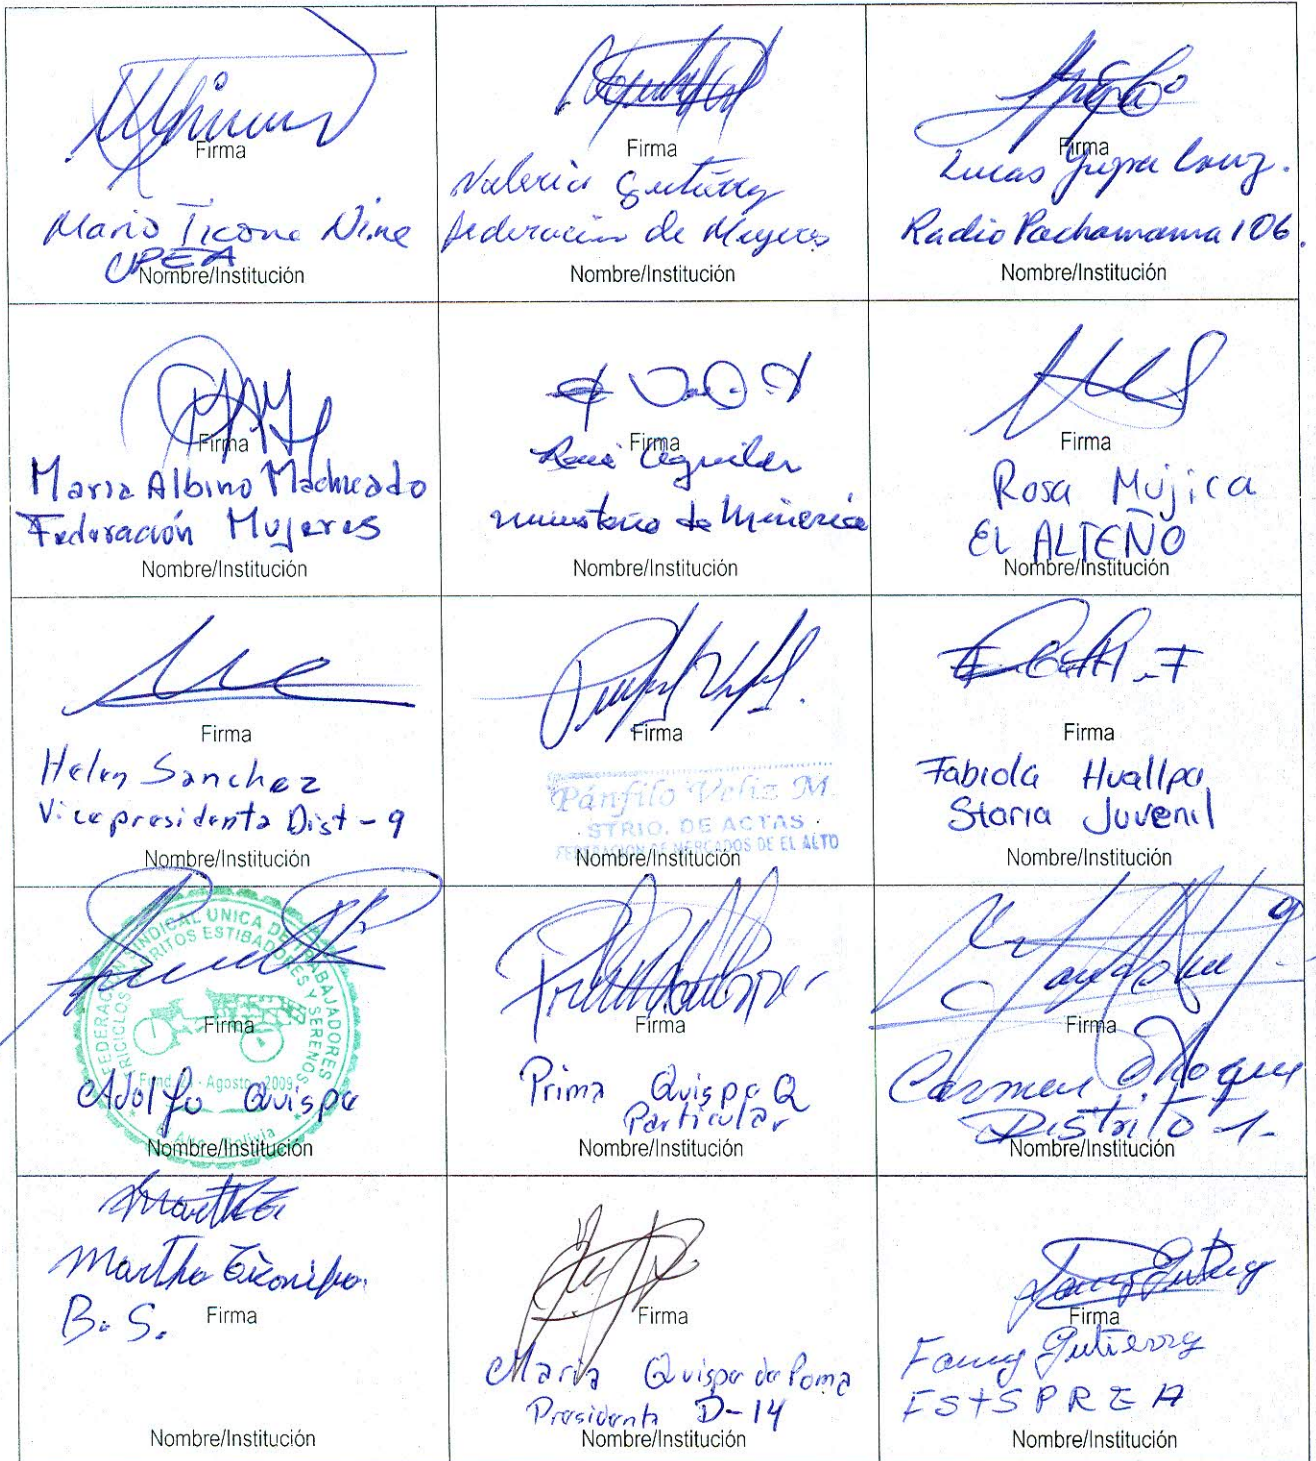 Firma
Mario Ticona Nina
UPEA
Nombre/Institución
Firma
Valeria Gutiérrez
Federación de Mujeres
Nombre/Institución
Firma
Lucas Yujra Cruz.
Radio Pachamama 106.
Nombre/Institución
Firma
Maria Albino Machicado
Federación Mujeres
Nombre/Institución
Firma
Aguilar
ministerio de Mineria
Nombre/Institución
Firma
Rosa Mujica
EL ALTEÑO
Nombre/Institución
Firma
Helen Sanchez
Vicepresidenta Dist-9
Nombre/Institución
Firma
Pánfilo Veliz M.
STRIO. DE ACTAS
FEDERACION DE MERCADOS DE EL ALTO
Nombre/Institución
Firma
Fabiola Huallpa
Storia Juvenil
Nombre/Institución
FEDERACION SINDICAL UNICA DE TRABAJADORES
TRICICLOS CARRITOS ESTIBADORES Y SERENOS
Firma
Agosto 2009
Adolfo Quispe
El Alto - Bolivia
Nombre/Institución
Firma
Prima Quispe Q
Particular
Nombre/Institución
Firma
Carmen Choque
Distrito 1.
Nombre/Institución
Martha
Martha
B. S.
Firma
Nombre/Institución
Firma
Maria Quispe de Poma
Presidenta D-14
Nombre/Institución
Firma
Fanny Gutierrez
FSTSPREA
Nombre/Institución